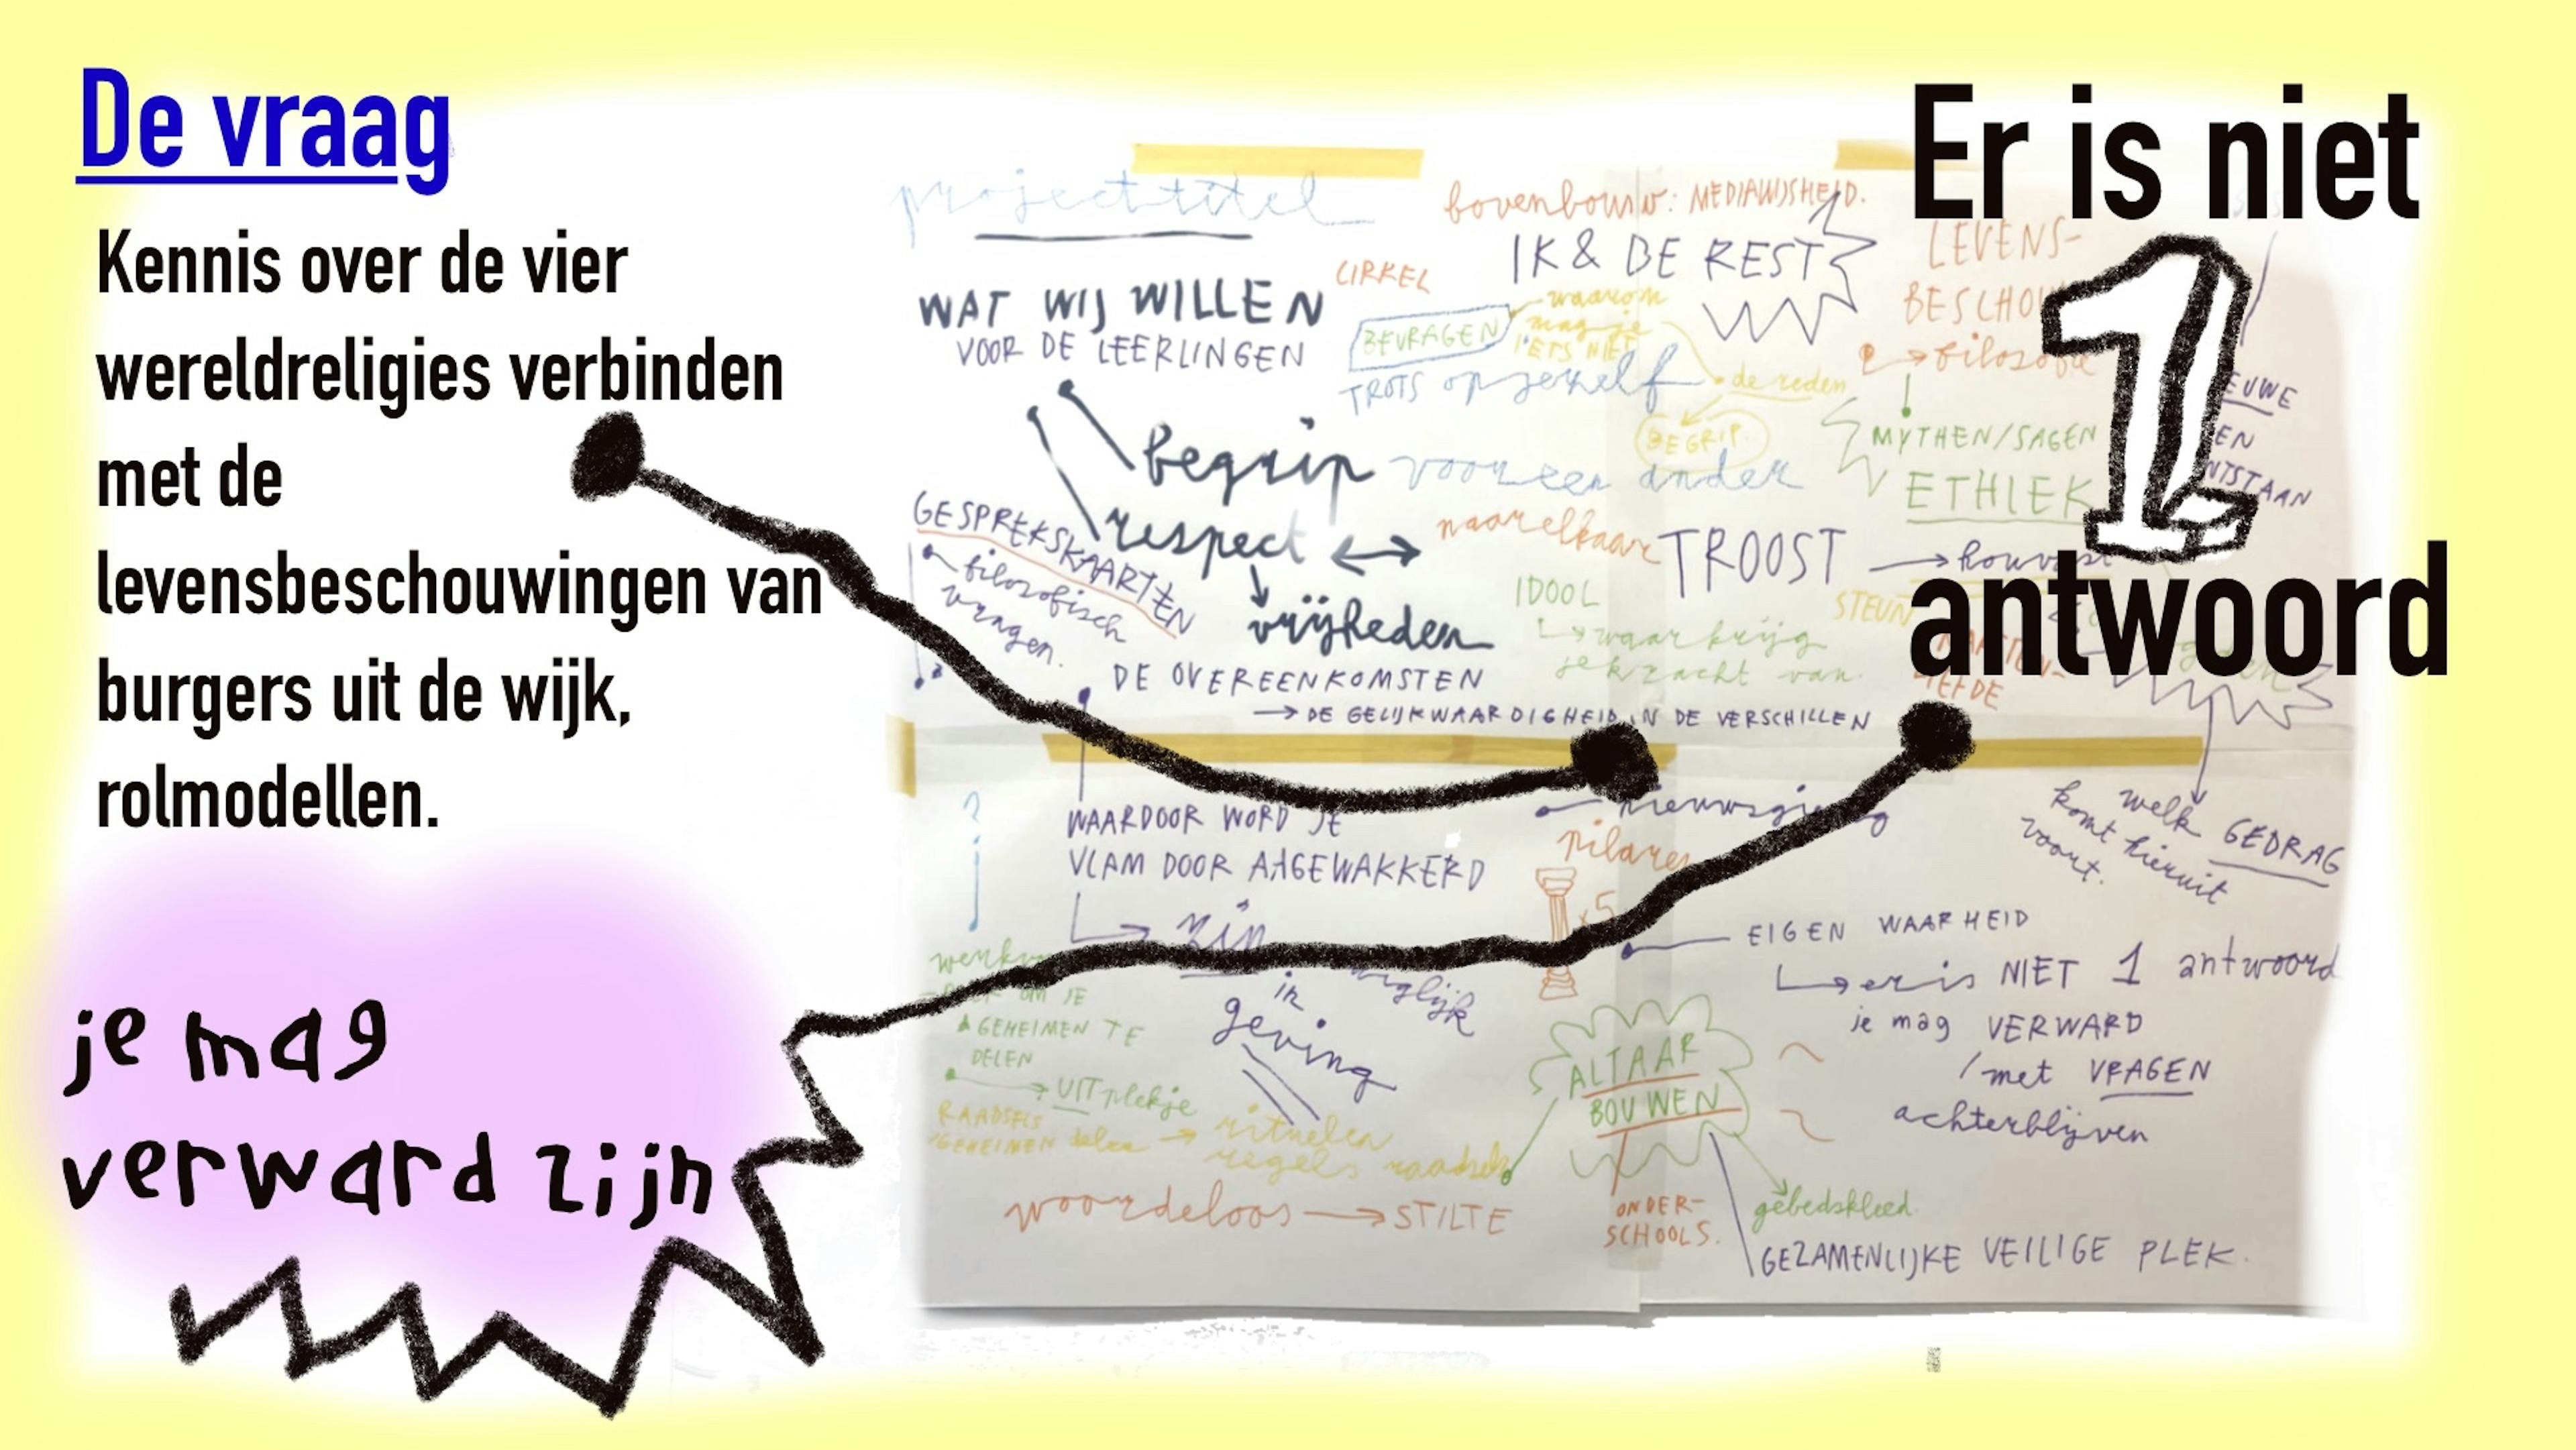 De vraag
Kennis over de vier
wereldreligies verbinden
met de
levensbeschouwingen van
burgers uit de wijk,
rolmodellen.
je mag
verward zijn
Er is niet
1
antwoord
projecttitel
WAT WIJ WILLEN
VOOR DE LEERLINGEN
begrip voor een ander
respect ↔ naar elkaar
vrijheden
GESPREKSKAARTEN
filosofisch
vragen.
DE OVEREENKOMSTEN
→ DE GELIJKWAARDIGHEID IN DE VERSCHILLEN
bovenbouw: MEDIAWIJSHEID.
IK & DE REST
CIRKEL
BEVRAGEN
waarom
mag je
IETS NIET
TROTS op jezelf
de reden
BEGRIP.
TROOST
→ houvast
STEUN
IDOOL
waar krijg
je kracht van.
LEVENS-
BESCHOU
→ filosofie
MYTHEN/SAGEN
ETHIEK
EUWE
EN
NTSTAAN
?
WAARDOOR WORD JE
VLAM DOOR AAGEWAKKERD
zin
in
geving
OM JE
GEHEIMEN TE
DELEN
→ UITplekje
RAADSELS
/GEHEIMEN delen → rituelen
regels raadsels
woordeloos → STILTE
nieuwsgierig
pilaren
x5
welk GEDRAG
komt hieruit
voort.
EIGEN WAARHEID
er is NIET 1 antwoord
je mag VERWARD
/met VRAGEN
achterblijven
ALTAAR
BOUWEN
ONDER-
SCHOOLS.
gebedskleed.
GEZAMENLIJKE VEILIGE PLEK.